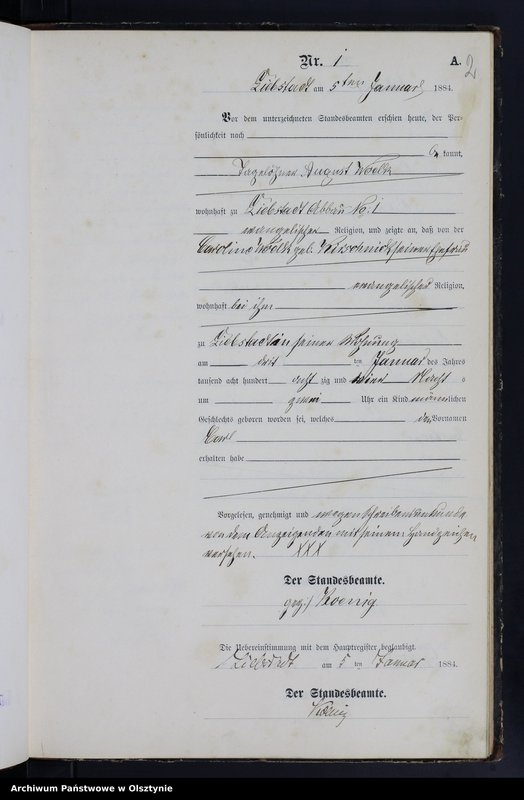 Nr. 1
A. 2
Liebstadt am 5ten Januar 1884.
Vor dem unterzeichneten Standesbeamten erschien heute, der Per-
sönlichkeit nach
kannt,
Tagelöhner August Wölk
wohnhaft zu Liebstadt Abbau No. 1
evangelischer Religion, und zeigte an, daß von der
Caroline Wölk geb. seiner Ehefrau
evangelischer Religion,
wohnhaft bei ihm
zu Liebstadt in seiner Wohnung
am drei ten Januar des Jahres
tausend acht hundert acht zig und vier Nachts
um zwei Uhr ein Kind männlichen
Geschlechts geboren worden sei, welches den Vornamen
Carl
erhalten habe
Vorgelesen, genehmigt und wegen Schreibensunkunde
von dem Anzeigenden mit seinem Handzeichen
versehen. XXX
Der Standesbeamte.
gez.) Koenig
Die Uebereinstimmung mit dem Hauptregister beglaubigt.
Liebstadt am 5 ten Januar 1884.
Der Standesbeamte.
Koenig
Archiwum Państwowe w Olsztynie